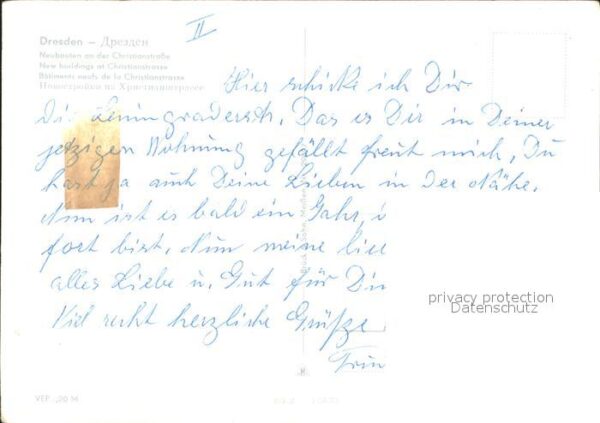 II
Dresden – Дрезден
Neubauten an der Christianstraße
New buildings at Christianstrasse
Bâtiments neufs de la Christianstrasse
Новостройки на Христианштрассе
Hier schicke ich Dir
die Leningradersch. Das es Dir in Deiner
jetzigen Wohnung gefällt freut mich, Du
hast ja auch Deine Lieben in der Nähe.
Nun ist es bald ein Jahr,
fort bist. Nun meine lie
alles Liebe u. Gut für Di
Viel recht herzliche Grüße
privacy protection
Datenschutz
VEP -,20 M